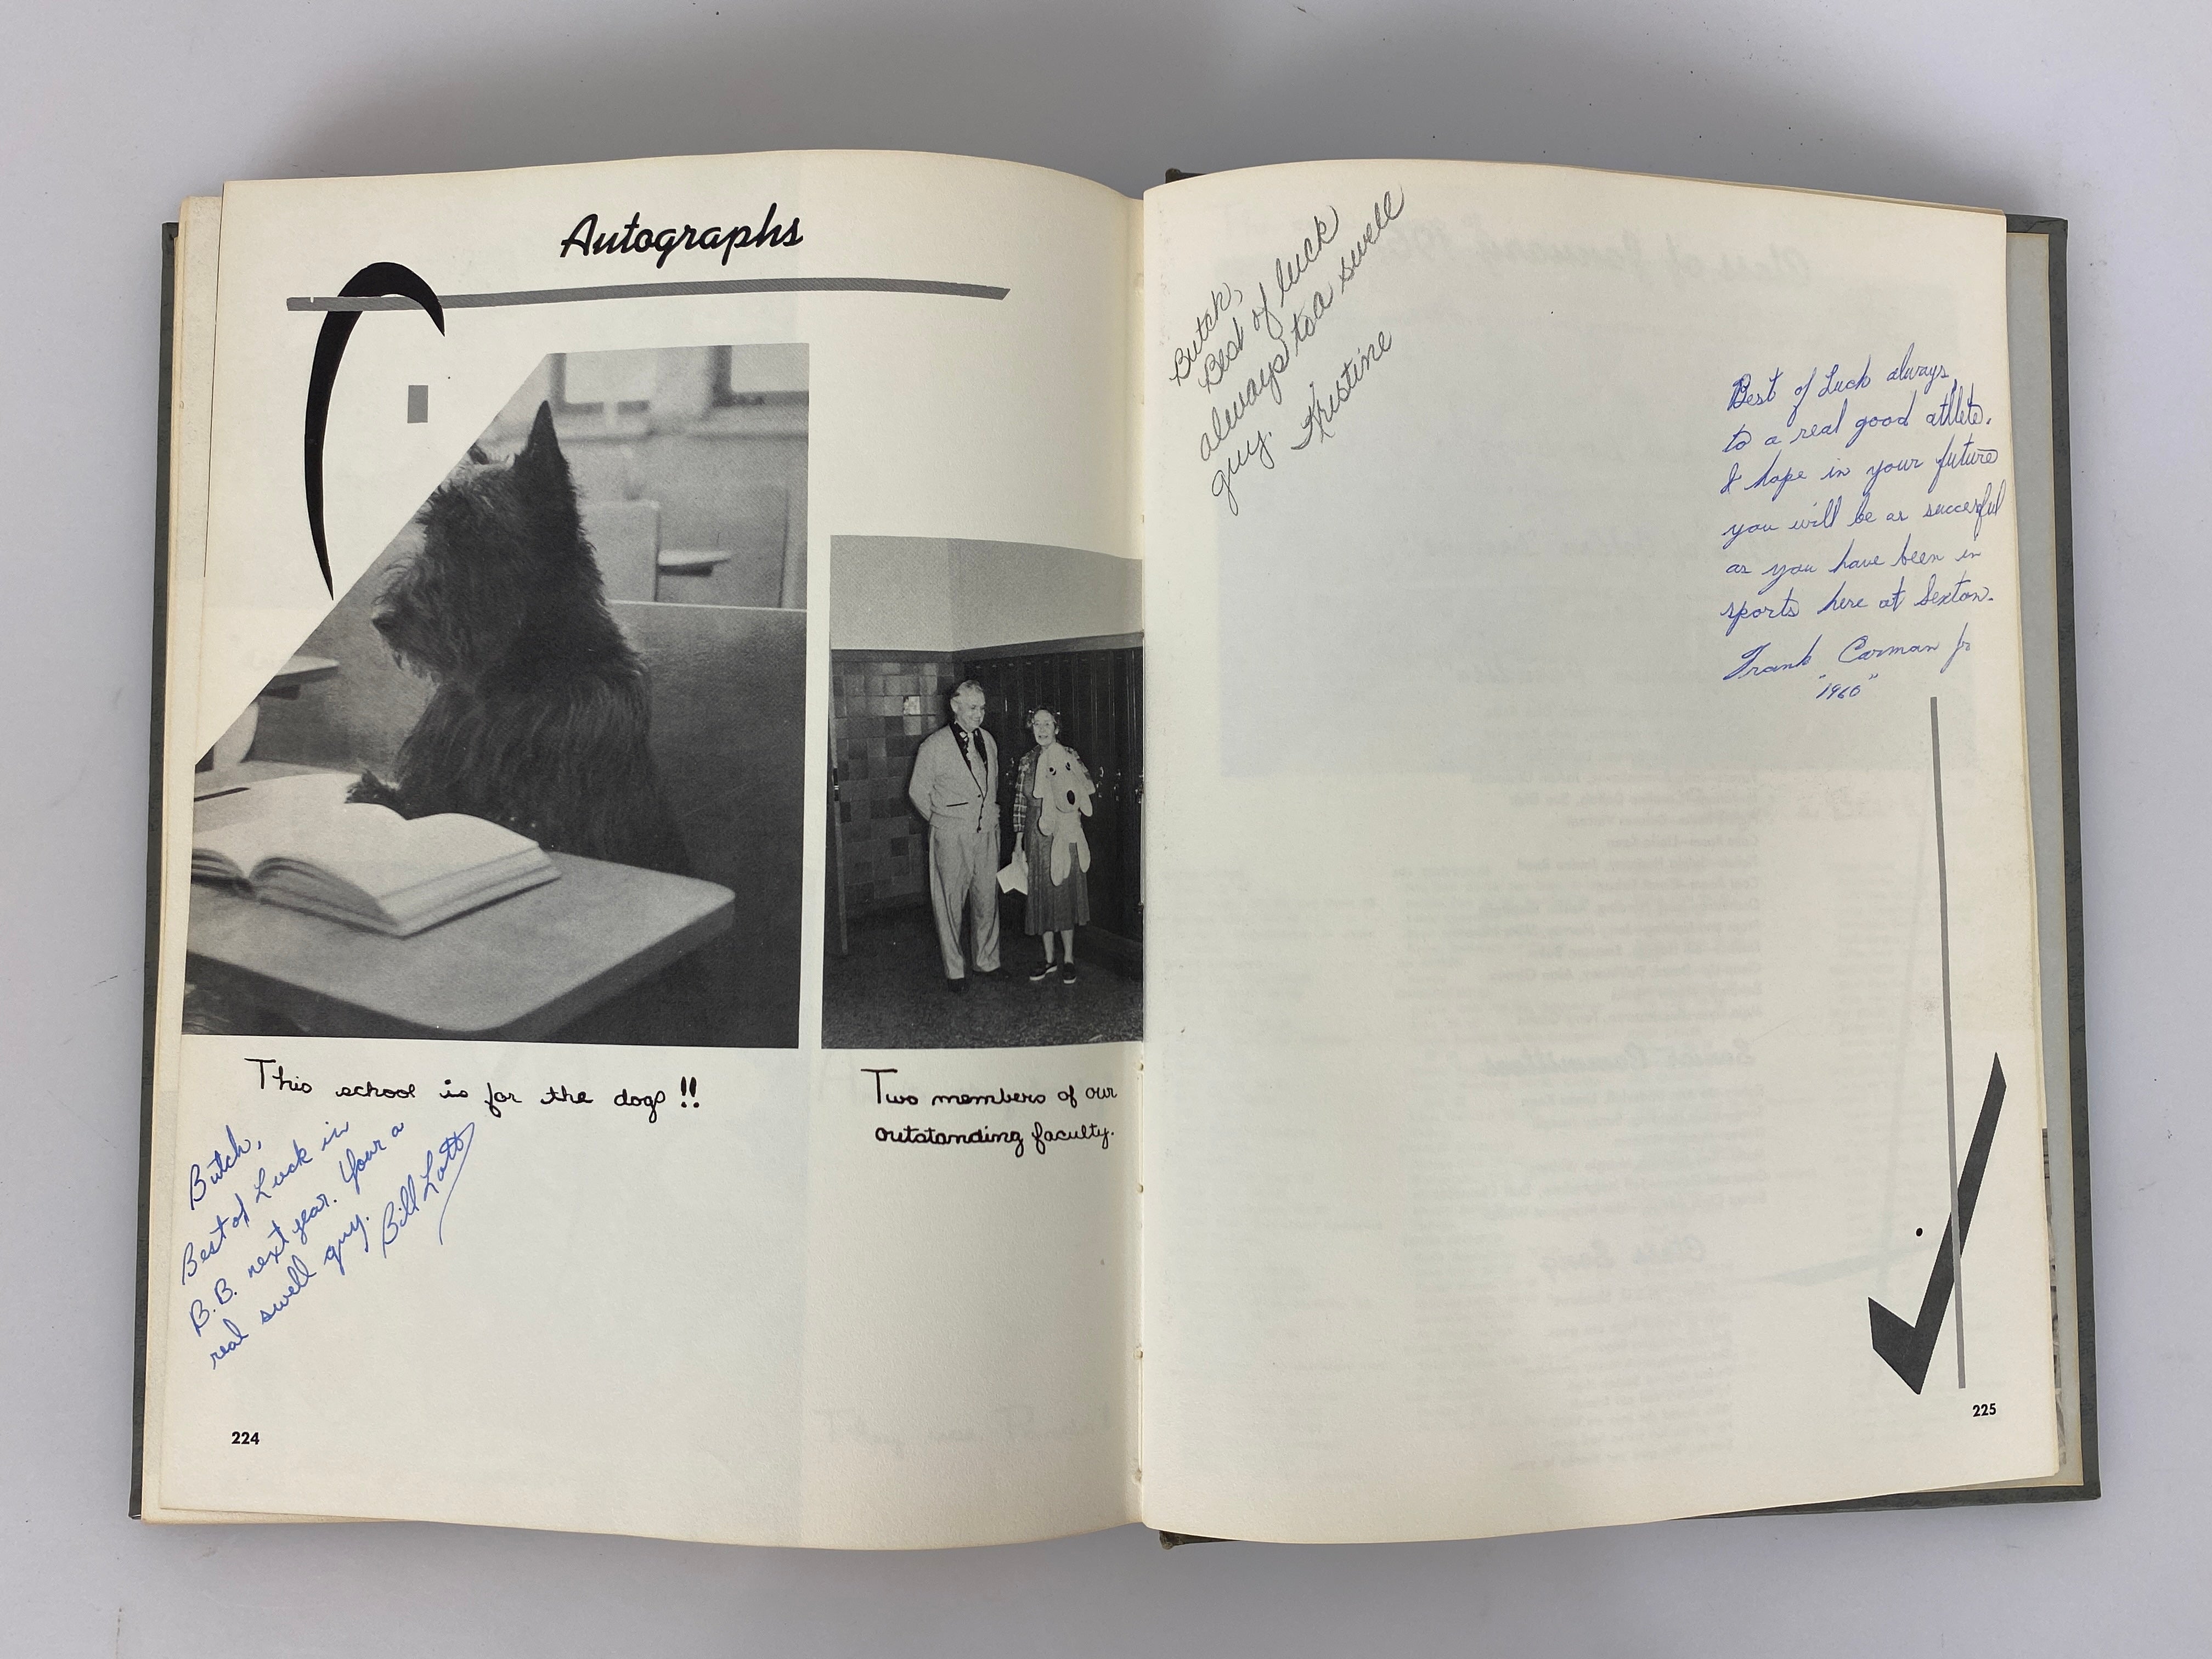 Autographs
This school is for the dogs !!
Two members of our
outstanding faculty.
Butch,
Best of Luck in
B.B. next year. Your a
real swell guy.
Bill Lott
224
Butch,
Best of luck
always to a swell
guy. Kristine
Best of Luck always,
to a real good athlete.
I hope in your future
you will be as succesful
as you have been in
sports here at Sexton.
Frank Carman Jr
"1960"
225